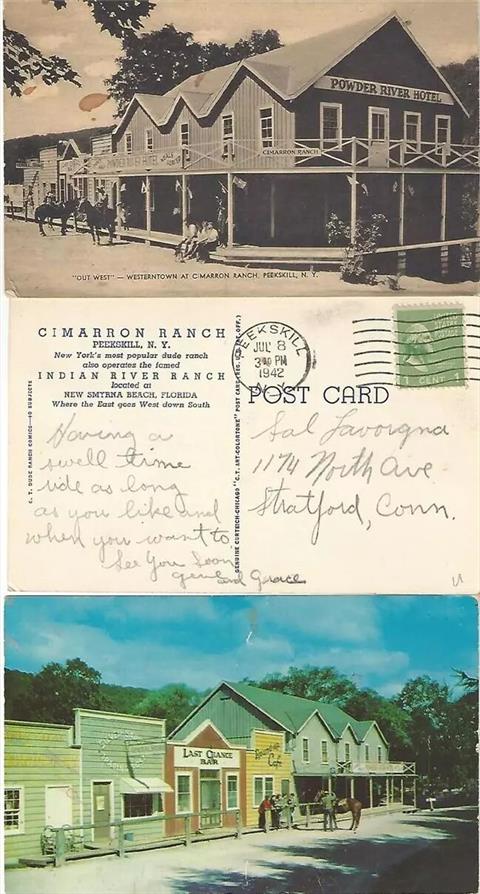 POWDER RIVER HOTEL
CIMARRON RANCH
POWDER RIVER HOTEL
"OUT WEST" — WESTERNTOWN AT CIMARRON RANCH, PEEKSKILL, N. Y.
CIMARRON RANCH
PEEKSKILL, N. Y.
New York's most popular dude ranch
also operates the famed
INDIAN RIVER RANCH
located at
NEW SMYRNA BEACH, FLORIDA
Where the East goes West down South
C. T. DUDE RANCH COMICS—10 SUBJECTS
Having a
swell time
ride as long
as you like and
when you want to
See You Soon
and Grace
GENUINE CURTEICH-CHICAGO "C.T. ART-COLORTONE" POST CARD (REG. U.S. PAT. OFF.)
PEEKSKILL
JUL 8
PM
1942
N.Y.
1 CENT
POST CARD
Sal Lavorgna
1174 North Ave
Stratford, Conn.
LAST CHANCE
BAR
Cafe